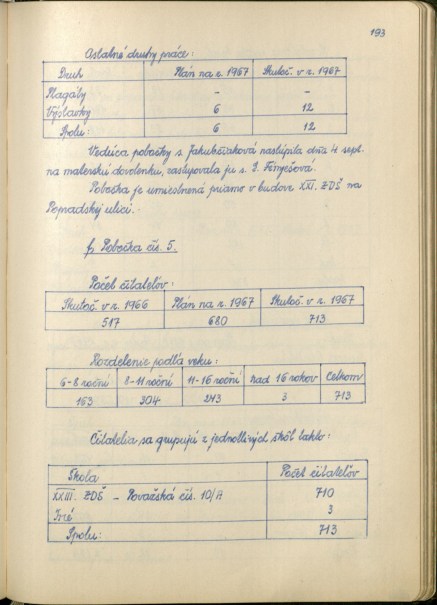 193
Ostatné druhy práce:
Druh Plán na r. 1967 Skutoč. v r. 1967
Plagáty - -
Výstavky 6 12
Spolu: 6 12
Vedúca pobočky s. Jakubčaková nastúpila dňa 4. sept.
na materskú dovolenku, zastupovala ju s.
Pobočka je umiestnená priamo v budove XXI. ZDŠ na
Popradskej ulici.
f, Pobočka čís. 5.
Počet čitateľov:
Skutoč. v r. 1966 Plán na r. 1967 Skutoč. v r. 1967
517 680 713
Rozdelenie podľa veku:
6-8 roční 8-11 roční 11-16 roční nad 16 rokov Celkom
163 304 243 3 713
Čitatelia sa grupujú z jednotlivých škôl takto:
Škola Počet čitateľov
XXIII. ZDŠ - Považská čís. 10/A 710
Iné 3
Spolu: 713